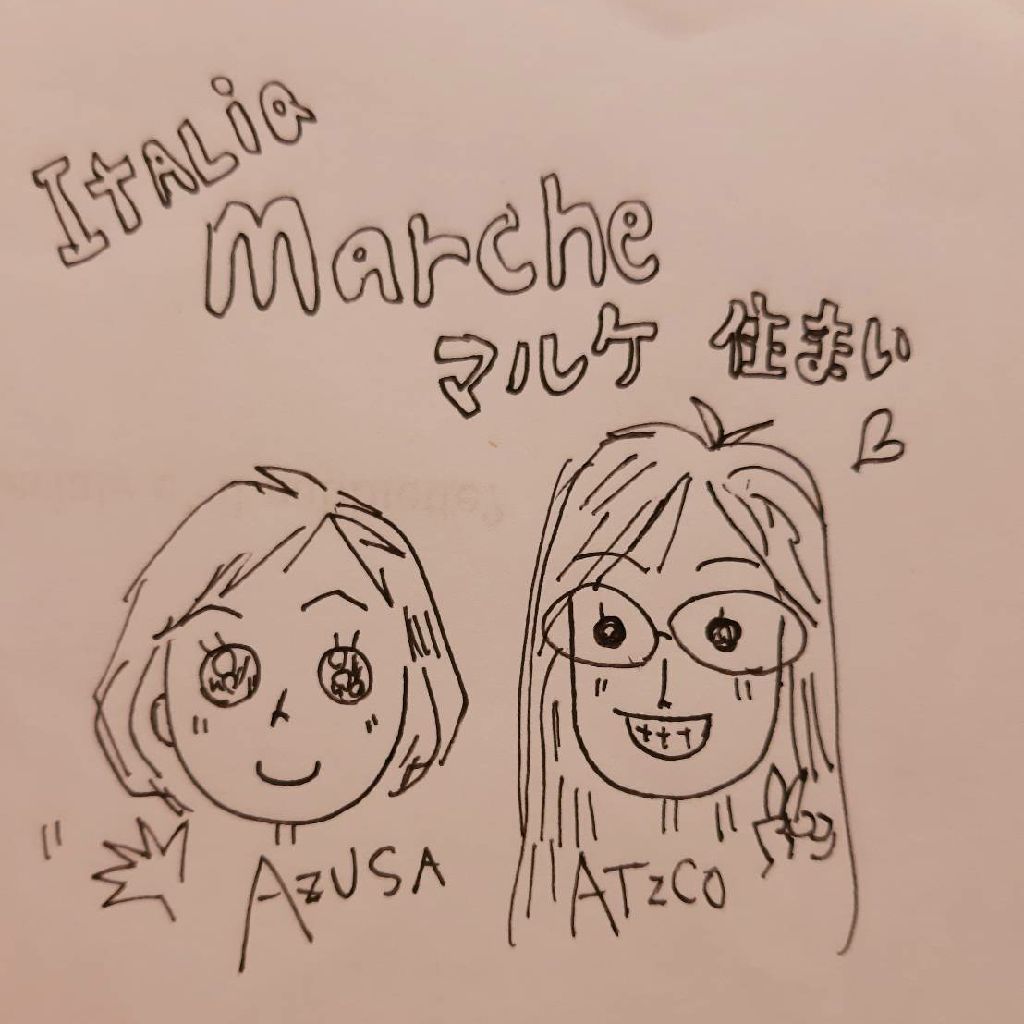 ITALiA
Marche
マルケ 住まい
AZUSA
ATZCO